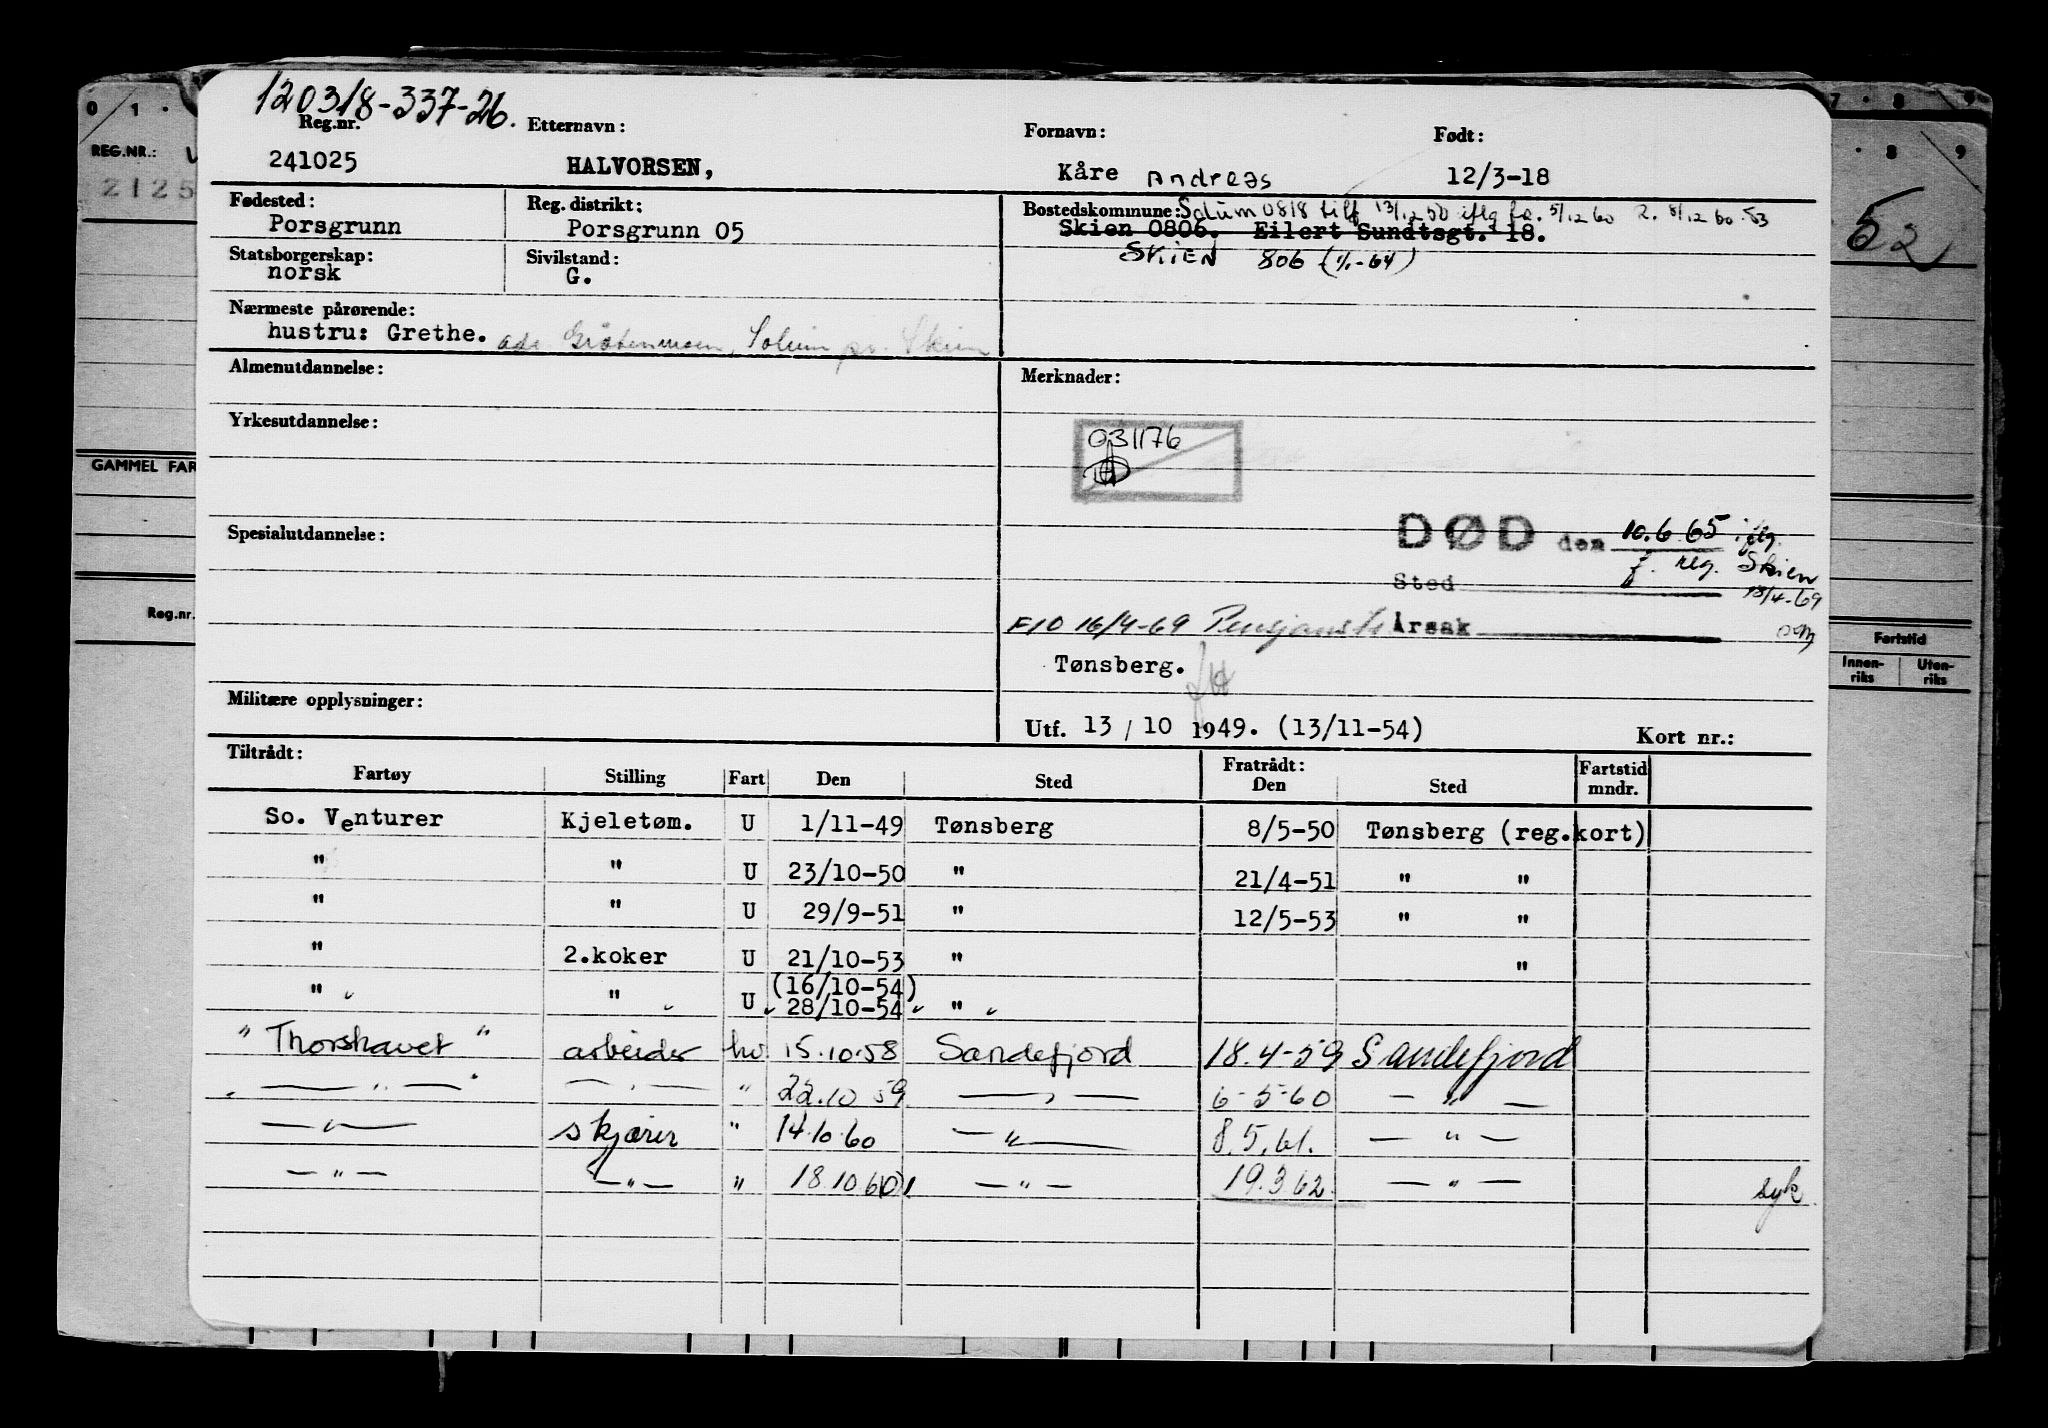 120318-337-26.
Reg.nr. Etternavn: Fornavn: Født:
241025 HALVORSEN, Kåre Andreas 12/3-18
Fødested: Reg. distrikt: Bostedskommune: Solum 0818 tilf 13/12 50 iflg fr. 5/12 60 2. 8/12 60 53
Porsgrunn Porsgrunn 05 Skien 0806. Eilert Sundtsgt. 18.
Statsborgerskap: Sivilstand: SKIEN 806 (1/1-64)
norsk G.
Nærmeste pårørende:
hustru: Grethe. Solum pr. Skien
Almenutdannelse: Merknader:
Yrkesutdannelse:
031176
Spesialutdannelse:
DØD den 10.6 65 iflg.
f. reg. Skien
Sted 18/4-69
F10 16/4-69 Pensjonstr Årsak
Tønsberg.
Militære opplysninger:
Utf. 13 / 10 1949. (13/11-54) Kort nr.:
Tiltrådt: Fratrådt:
Fartøy Stilling Fart Den Sted Den Sted Fartstid mndr.
So. Venturer Kjeletøm. U 1/11-49 Tønsberg 8/5-50 Tønsberg (reg.kort)
" " U 23/10-50 " 21/4-51 " "
" " U 29/9-51 " 12/5-53 " "
" 2.koker U 21/10-53 " "
(16/10-54)
" " U 28/10-54 "
"Thorshavet" arbeider hv 15.10.58 Sandefjord 18.4-59 Sandefjord
— " — — " — " 22.10 59 — " — 6-5-60 — " —
— " — skjærer " 14.10.60 — " — 8.5.61. — " —
— " — — " — " 18.10.61 — " — 19.3 62. — " — syk
0 1
REG.NR.:
2125
GAMMEL FAR
Reg.nr.
7 8 9
8 9
52
Fartstid
Innen-riks Uten-riks